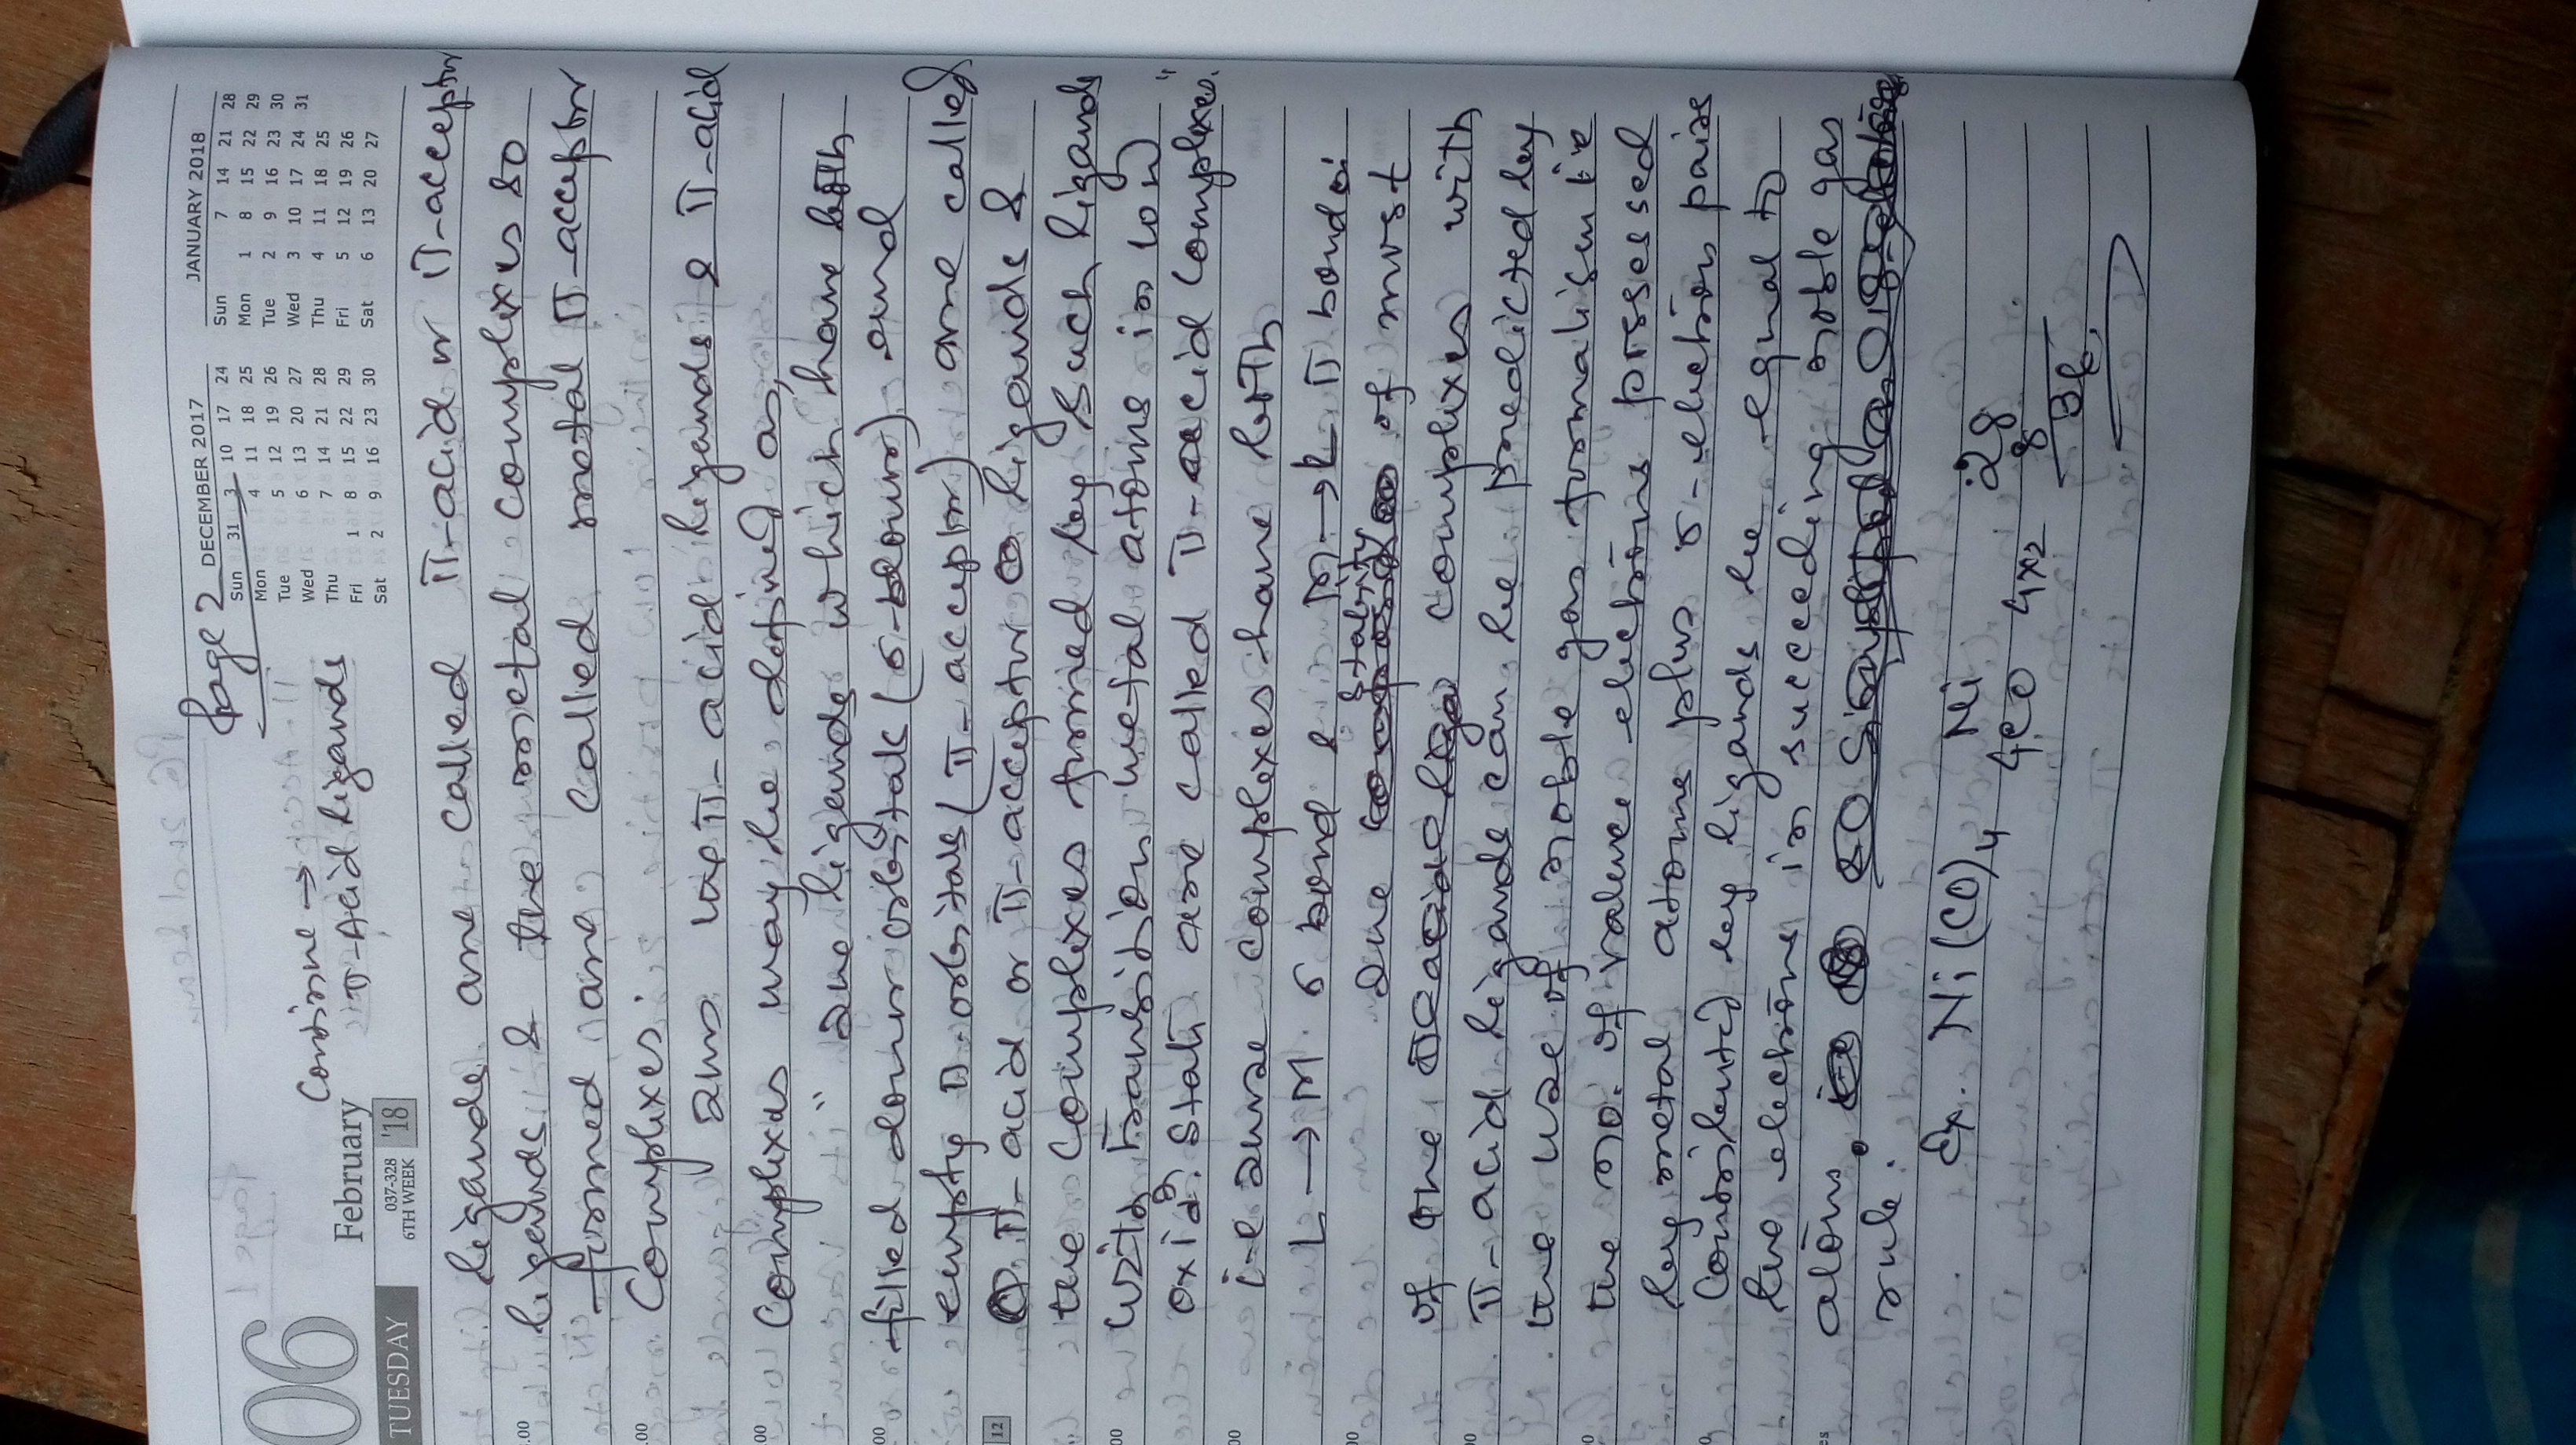 Page 2
DECEMBER 2017 JANUARY 2018
Sun 31 3 10 17 24 Sun 7 14 21 28
Mon 4 11 18 25 Mon 1 8 15 22 29
Tue 5 12 19 26 Tue 2 9 16 23 30
Wed 6 13 20 27 Wed 3 10 17 24 31
Thu 7 14 21 28 Thu 4 11 18 25
Fri 1 8 15 22 29 Fri 5 12 19 26
Sat 2 9 16 23 30 Sat 6 13 20 27
06
February
037-328
6TH WEEK '18
TUESDAY
Combine →
π-Acid ligands
ligands are called π-acid or π-acceptor
ligands & the metal complexes so
formed are called metal π-acceptor
Complexes.
π-acid ligands & π-acid
complexes may be defined as,
" The ligands which have both
filled donor orbitals (σ-donor) and
empty π orbitals (π-acceptor) are called
π-acid or π-acceptor ligands &
the complexes formed by such ligands
with transition metal atoms in low
oxidn. state are called π-acid complexes."
i-e these complexes have both
L → M σ bond & M → L π bond.
The stability of most
of the complexes with
π-acid ligands can be predicted by
the use of noble gas formalism i.e
the no. of valence electrons possessed
by metal atoms plus σ-electron pairs
contributed by ligands be equal to
the electrons in succeeding noble gas
atoms.
rule.
Ex. Ni(CO)4 Ni 28
4CO 4x2 8
36